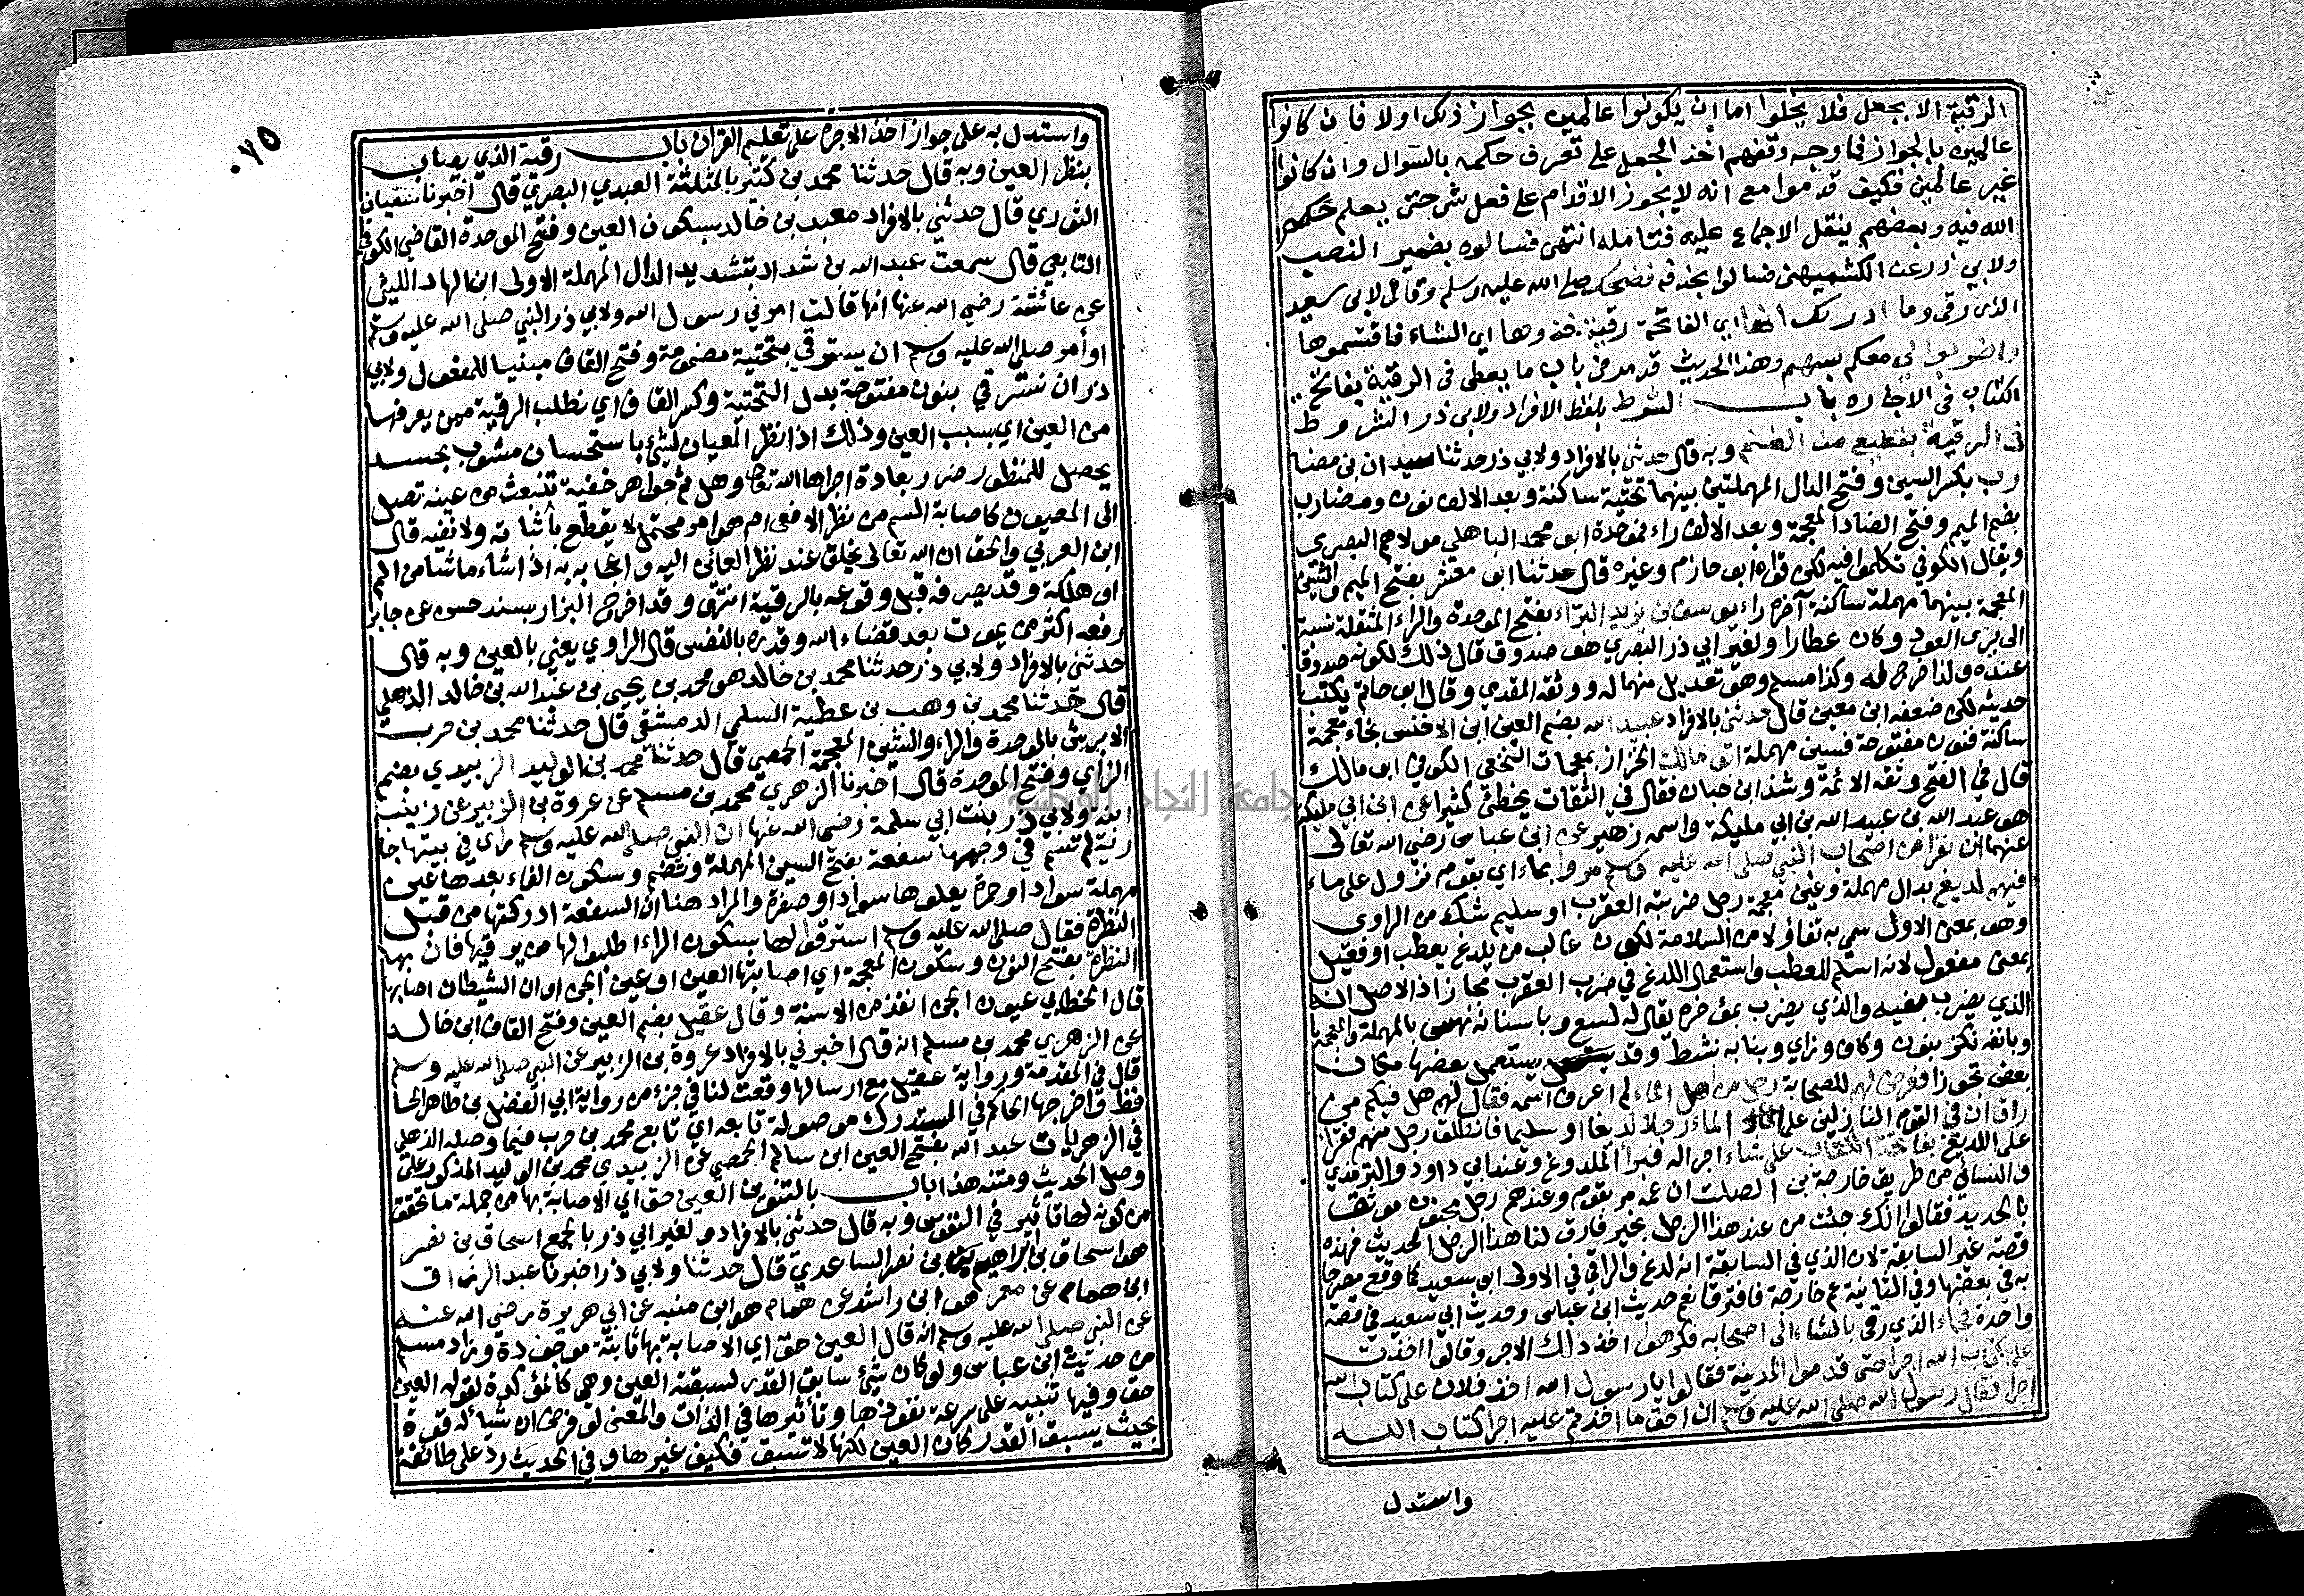 الرقية الا بجعل فلا يخلوا اما ان يكونوا عالمين بجواز ذلك اولا فان كانوا
عالمين بالجواز فما وجه وقفهم اخذ الجعل على تعرف حكمه بالسوال وان كانوا
غير عالمين فكيف قدموا مع انه لا يجوز الاقدام على فعل شي حتى يعلم حكم
الله فيه وبعضهم ينقل الاجماع عليه فتامله انتهى فسالوه بضمير النصب
ولابي ذر عن الكشميهني فسالوا بحذفه فضحك صلى الله عليه وسلم وقال لابي سعيد
الذي رقى وما ادريك انها اي الفاتحة رقية خذوها اي الشاء فاقتسموها
واضربوا لي معكم بسهم وهذا الحديث قد مر في باب ما يعطى في الرقية بفاتحة
الكتاب في الاجاره باب الشرط بلفظ الافراد ولابي ذر الشروط
في الرقية بقطيع من الغنم وبه قال حدثني بالافراد ولابي ذر حدثنا سيدان بن مضا
رب بكسر السين وفتح الدال المهملتين بينهما تحتية ساكنة وبعد الالف نون ومضارب
بضم الميم وفتح الضاد المعجمة وبعد الالف راء فموحدة ابو محمد الباهلي مولاهم البصري
ويقال الكوفي تكلموا فيه لكن قواه ابو حازم وغيره قال حدثنا ابو معشر بفتح الميم والشين
المعجمة بينهما مهملة ساكنة آخره راء يوسف بن يزيد البراء بفتح الموحدة والراء المثقلة نسبة
الى برى العود وكان عطارا ولغير ابي ذر البصري هو صدوق قال ذلك لكونه صدوقا
عنده ولذا خرج له وكذا مسلم وهو تعديل منهما له ووثقه المقدمي وقال ابو حاتم يكتب
حديثه لكن ضعفه ابن معين قال حدثني بالافراد عبيد الله بضم العين ابن الاخنس بخاء معجمة
ساكنة فنون مفتوحة فسين مهملة ابو مالك الخزاز بمعجمات النخعي الكوفي ابو مالك
قال في الفتح وثقه الائمة وشذ ابن حبان فقال في الثقات يخطئ كثيرا عن ابن ابي مليكة
هو عبد الله بن عبيد الله بن ابي مليكة واسمه زهير عن ابن عباس رضي الله تعالى
عنهما ان نفرا من اصحاب النبي صلى الله عليه وسلم مروا بماء اي بقوم نزول على ماء
فيهم لديغ بدال مهملة وغين معجمة رجل ضربته العقرب او سليم شك من الراوي
وهو بمعنى الاول سمي به تفاؤلا من السلامة لكون غالب من يلدغ يعطب او فعيل
بمعنى مفعول لانه اسلم للعطب واستعمال اللدغ في ضرب العقرب مجازا ذ الاصل انه
الذي يضرب بفيه والذي يضرب بمؤخره يقال له لسع وباسنانه نهس بالمهملة والمعجمة
وبانفه نكز بنون وكاف وزاي وبنابه نشط وقد يستعمل بعضها مكان
بعض تجوزا فعرض لهم للصحابة رجل من اهل الماء لم اعرف اسمه فقال لهم هل فيكم من
راق ان في القوم النازلين على الماء رجلا لديغا او سليما فانطلق رجل منهم فقرا
على اللديغ بفاتحة الكتاب على شاء اجر له فبرا الملدوغ وعند ابي داود والترمذي
والنسائي من طريق خارجة بن الصلت ان عمه مر بقوم وعندهم رجل مجنون موثق
بالحديد فقالوا انك جئت من عند هذا الرجل بخير فارق لنا هذا الرجل الحديث فهذه
قصة غير السابقة لان الذي في السابقة انه لدغ والراقي في الاولى ابو سعيد كما وقع مصرحا
به في بعضها وفي الثانية عم خارجة فافترقا نعم حديث ابن عباس وحديث ابي سعيد في قصة
واحدة فجاء الذي رقى بالشاء الى اصحابه فكرهوا اخذ ذلك الاجر وقالوا اخذت
على كتاب الله اجرا حتى قدموا المدينة فقالوا يا رسول الله اخذ فلان على كتاب الله
اجرا فقال رسول الله صلى الله عليه وسلم ان احق ما اخذتم عليه اجرا كتاب الله
واستدل
٠٧٥
واستدل به على جواز اخذ الاجرة على تعليم القران باب رقية الذي يصاب
بنظر العين وبه قال حدثنا محمد بن كثير بالمثلثة العبدي البصري قال اخبرنا سفيان
الثوري قال حدثني بالافراد معبد بن خالد بسكون العين وفتح الموحدة القاضي الكوفي
التابعي قال سمعت عبد الله بن شداد بتشديد الدال المهملة الاولى ابن الهاد الليثي
عن عائشة رضي الله عنها انها قالت امرني رسول الله ولابي ذر النبي صلى الله عليه وسلم
او أمر صلى الله عليه وسلم ان يسترقي بتحتية مضمومة وفتح القاف مبنيا للمفعول ولابي
ذر ان نسترقي بنون مفتوحة بدل التحتية وكسر القاف اي نطلب الرقية ممن يعرفها
من العين اي بسبب العين وذلك اذا نظر المعيان لشئ باستحسان مشوب بحسد
يحصل للمنظور ضرر بعادة اجراها الله تعالى وهل ثم جواهر خفية تنبعث من عينه تصل
الى المعيون كاصابة السم من نظر الافعى ام هو امر محتمل لا يقطع باثباته ولا نفيه قال
ابن العربي والحق ان الله تعالى يخلق عند نظر العائن اليه واعجابه به اذا شاء ما شا من الم
او هلكة وقد يصرفه قبل وقوعه بالرقية انتهى وقد اخرج البزار بسند حسن عن جابر
رفعه اكثر من يموت بعد قضاء الله وقدره بالنفس قال الراوي يعني بالعين وبه قال
حدثني بالافراد ولابي ذر حدثنا محمد بن خالد هو محمد بن يحيى بن عبد الله بن خالد الذهلي
قال حدثنا محمد بن وهب بن عطية السلمي الدمشقي قال حدثنا محمد بن حرب
الابرش بالموحدة والراء والشين المعجمة الحمصي قال حدثنا محمد بن الوليد الزبيدي بضم
الزاي وفتح الموحدة قال اخبرنا الزهري محمد بن مسلم عن عروة بن الزبير عن زينب
ابنة ولابي ذر بنت ابي سلمة رضي الله عنها ان النبي صلى الله عليه وسلم راى في بيتها جا
رية لم تسم في وجهها سفعة بفتح السين المهملة وتضم وسكون الفاء بعدها عين
مهملة سواد او حمرة يعلوها سواد او صفرة والمراد هنا ان السفعة ادركتها من قبل
النظرة فقال صلى الله عليه وسلم استرقوا لها بسكون الراء اطلبوا لها من يرقيها فان بها
النظرة بفتح النون وسكون المعجمة اي اصابتها العين او عين الجن او ان الشيطان اصابها
قال الخطابي عيون الجن انفذ من الاسنة وقال عقيل بضم العين وفتح القاف ابن خالد
عن الزهري محمد بن مسلم انه قال اخبرني بالافراد عروة بن الزبير عن النبي صلى الله عليه وسلم
قال في المقدمة ورواية عقيل مع ارسالها وقعت لنا في جزء من رواية ابي الفضل بن طاهر الحا
فظ واخرجها الحاكم في المستدرك موصولة تابعه اي تابع محمد بن حرب فيما وصله الذهلي
في الزهريات عبد الله بفتح العين ابن سالم الحمصي عن الزبيدي محمد بن الوليد المذكور على
وصل الحديث ومتنه هذا باب بالتنوين العين حق اي الاصابة بها من جملة ما تحقق
من كونه لها تأثير في النفوس وبه قال حدثني بالافراد ولغير ابي ذر بالجمع اسحاق بن نصر
هو اسحاق بن ابراهيم بن نصر الساعدي قال حدثنا ولابي ذر اخبرنا عبد الرزاق
ابن همام عن معمر هو ابن راشد عن همام هو ابن منبه عن ابي هريرة رضي الله عنه
عن النبي صلى الله عليه وسلم انه قال العين حق اي الاصابة بها ثابتة موجودة وزاد مسلم
من حديث ابن عباس ولو كان شئ سابق القدر لسبقته العين وهي كالمؤكدة لقوله العين
حق وفيها تنبيه على سرعة نفوذها وتأثيرها في الذات والمعنى لو فرض ان شيأ له قوة
بحيث يسبق القدر كان العين لكنها لا تسبق فكيف غيرها وفي الحديث رد على طائفة
جامعة النجاح الوطنية